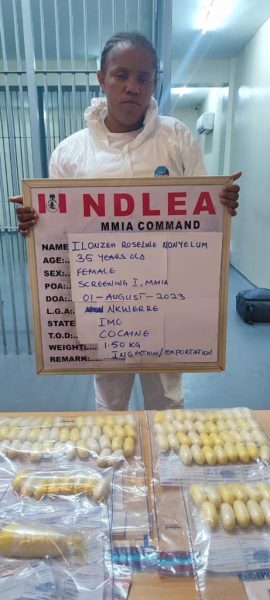 NDLEA
MMIA COMMAND
NAME ILONZEH ROSELINE NONYELUM
AGE:.... 35 YEARS OLD
SEX:.... FEMALE
POA:.... SCREENING I, MMIA
DOA:.... 01-AUGUST-2023
L.G.A: NKWERRE
STATE IMO
T.O.D: COCAINE
WEIGHT:.... 1.50KG
REMARK:..... INGESTION/EXPORTATION